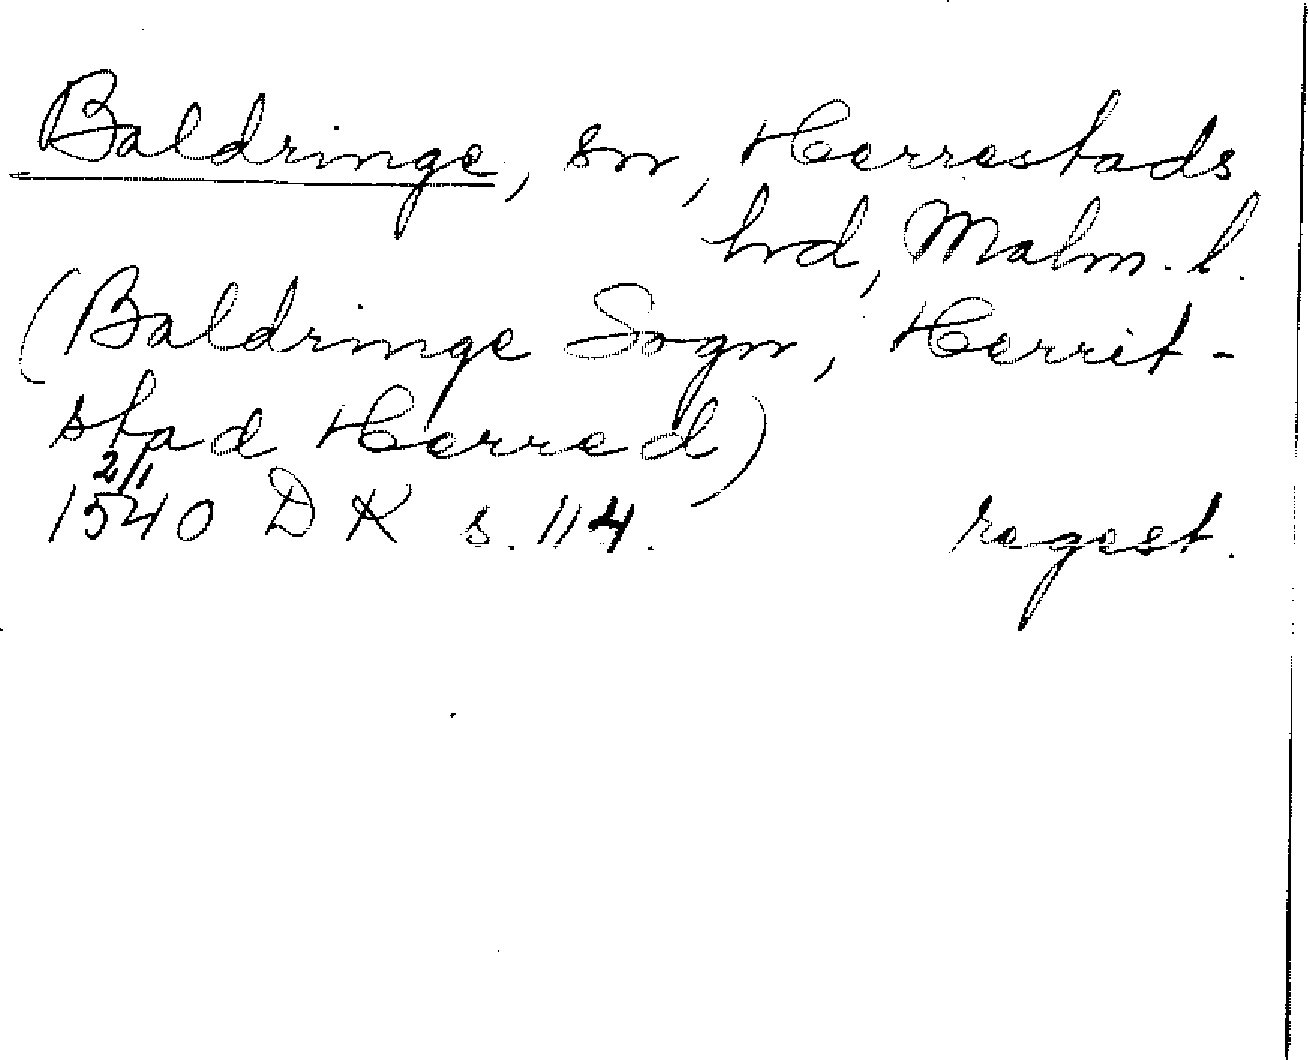 Baldringe, sn, Herrestads
hrd, Malm. l.
(Baldringe Sogn, Herrit-
stad Herred)
2/1
1540 DK s. 114. regest.